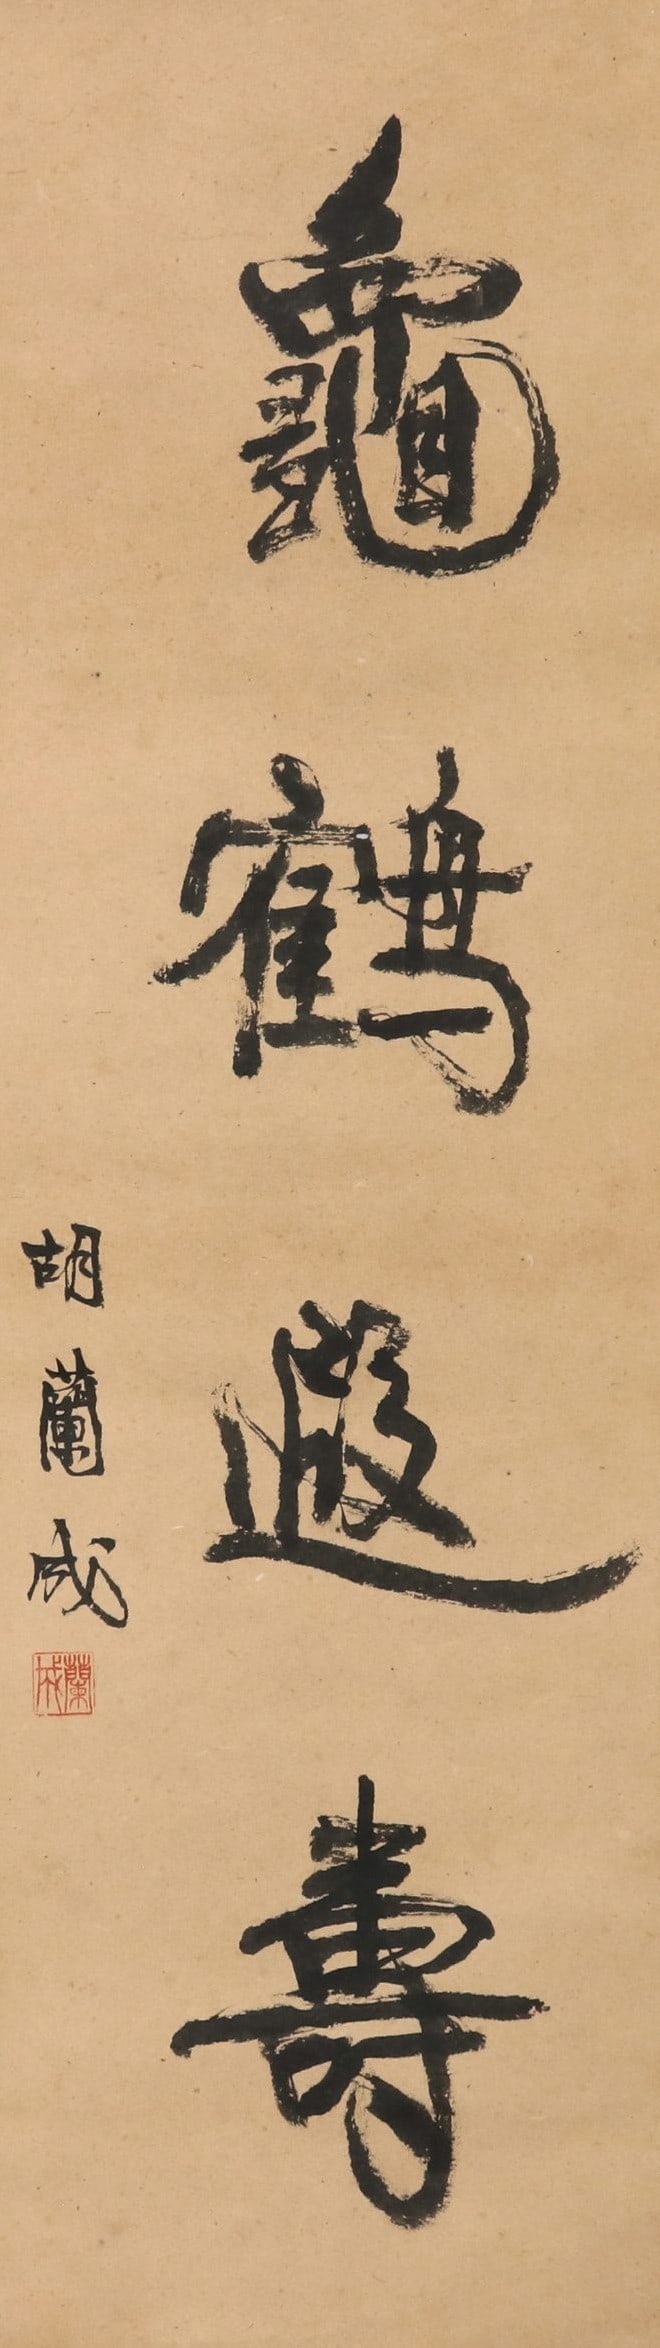 龜鶴遐壽
胡蘭成
蘭成